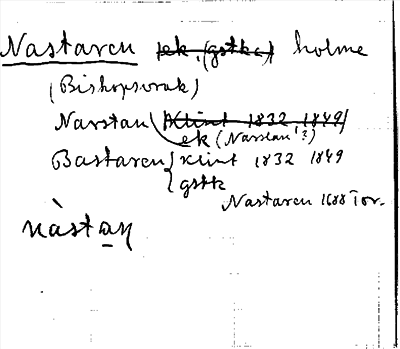 Nastaren ek. (gstk) holme
(Bishopsorak)
Narstan (Klint 1832 1849)
ek (Narslan'?)
Bastaren { Klint 1832 1849
gstk
Nastaren 1688 Tor.
nàstaŋ